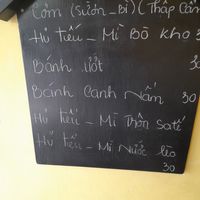 Cơm (Sườn - Bì) (Thập Cẩm
Hủ Tiếu - Mì Bò kho 3
Bánh ướt 30
Bánh Canh Nấm 30
Hủ tiếu - Mì Thập saté
Hủ tiếu - Mì Nước lèo
30